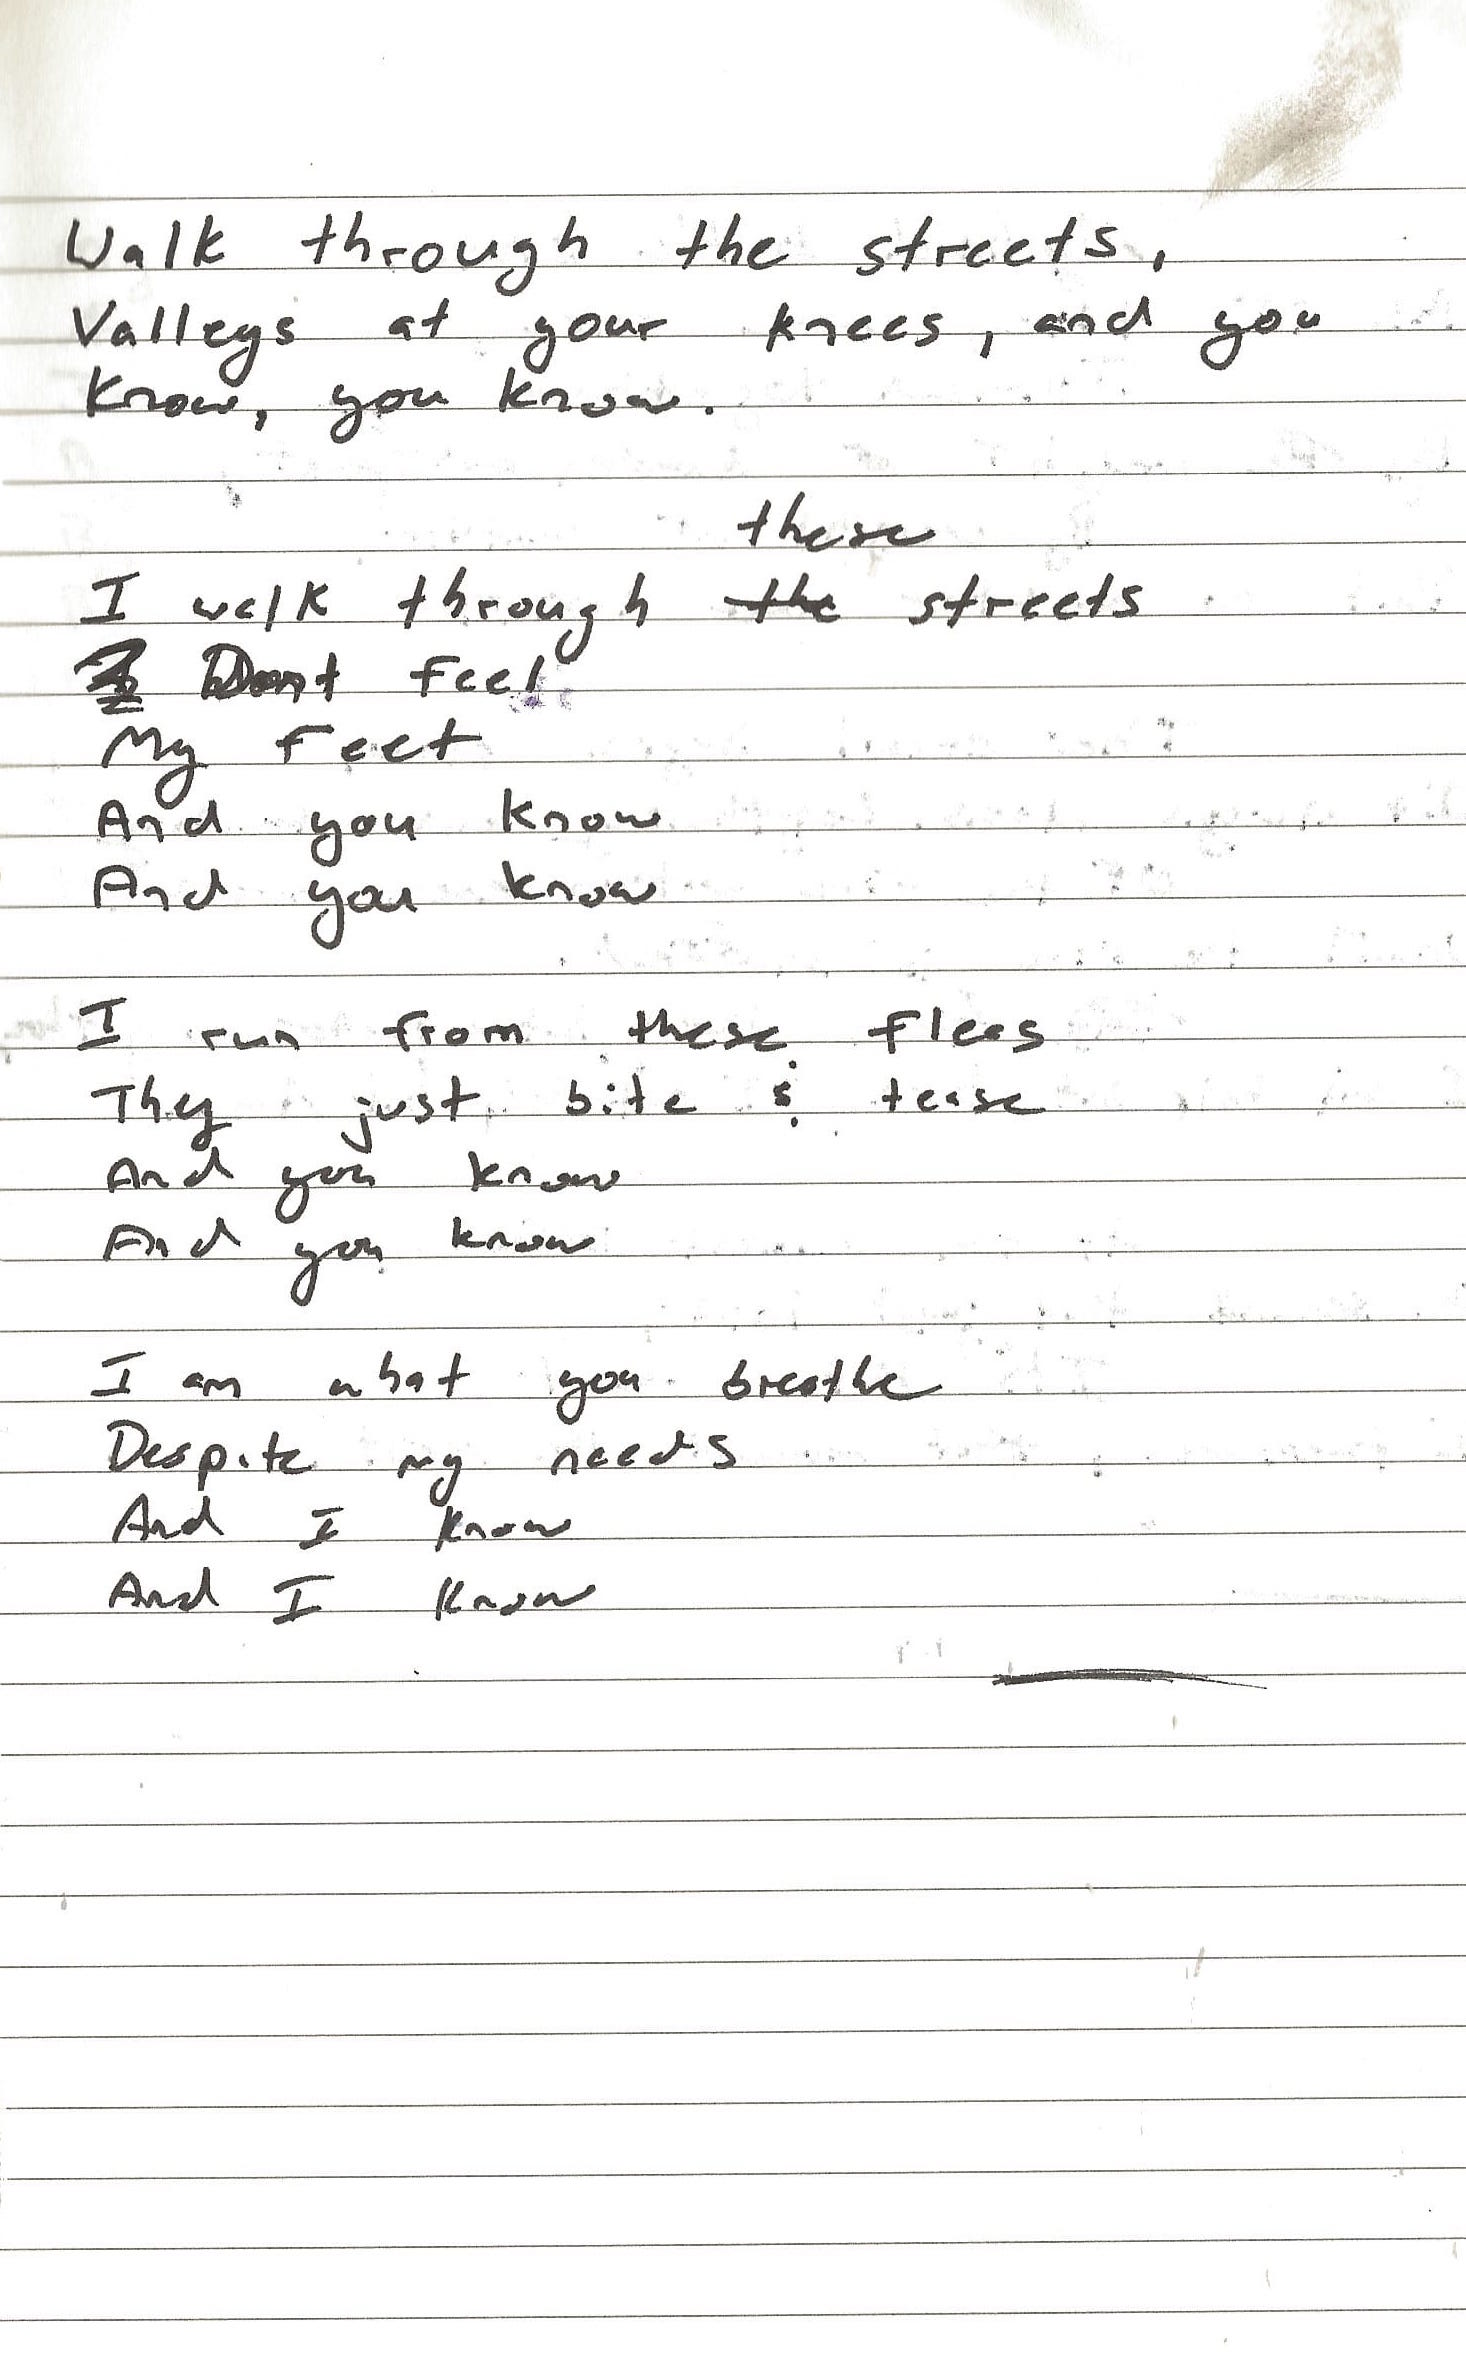 Walk through the streets,
Valleys at your knees, and you
know, you know.
these
I walk through the streets
Dont feel
My feet
And you know
And you know
I run from these fleas
They just bite & tease
And you know
And you know
I am what you breathe
Despite my needs
And I know
And I know